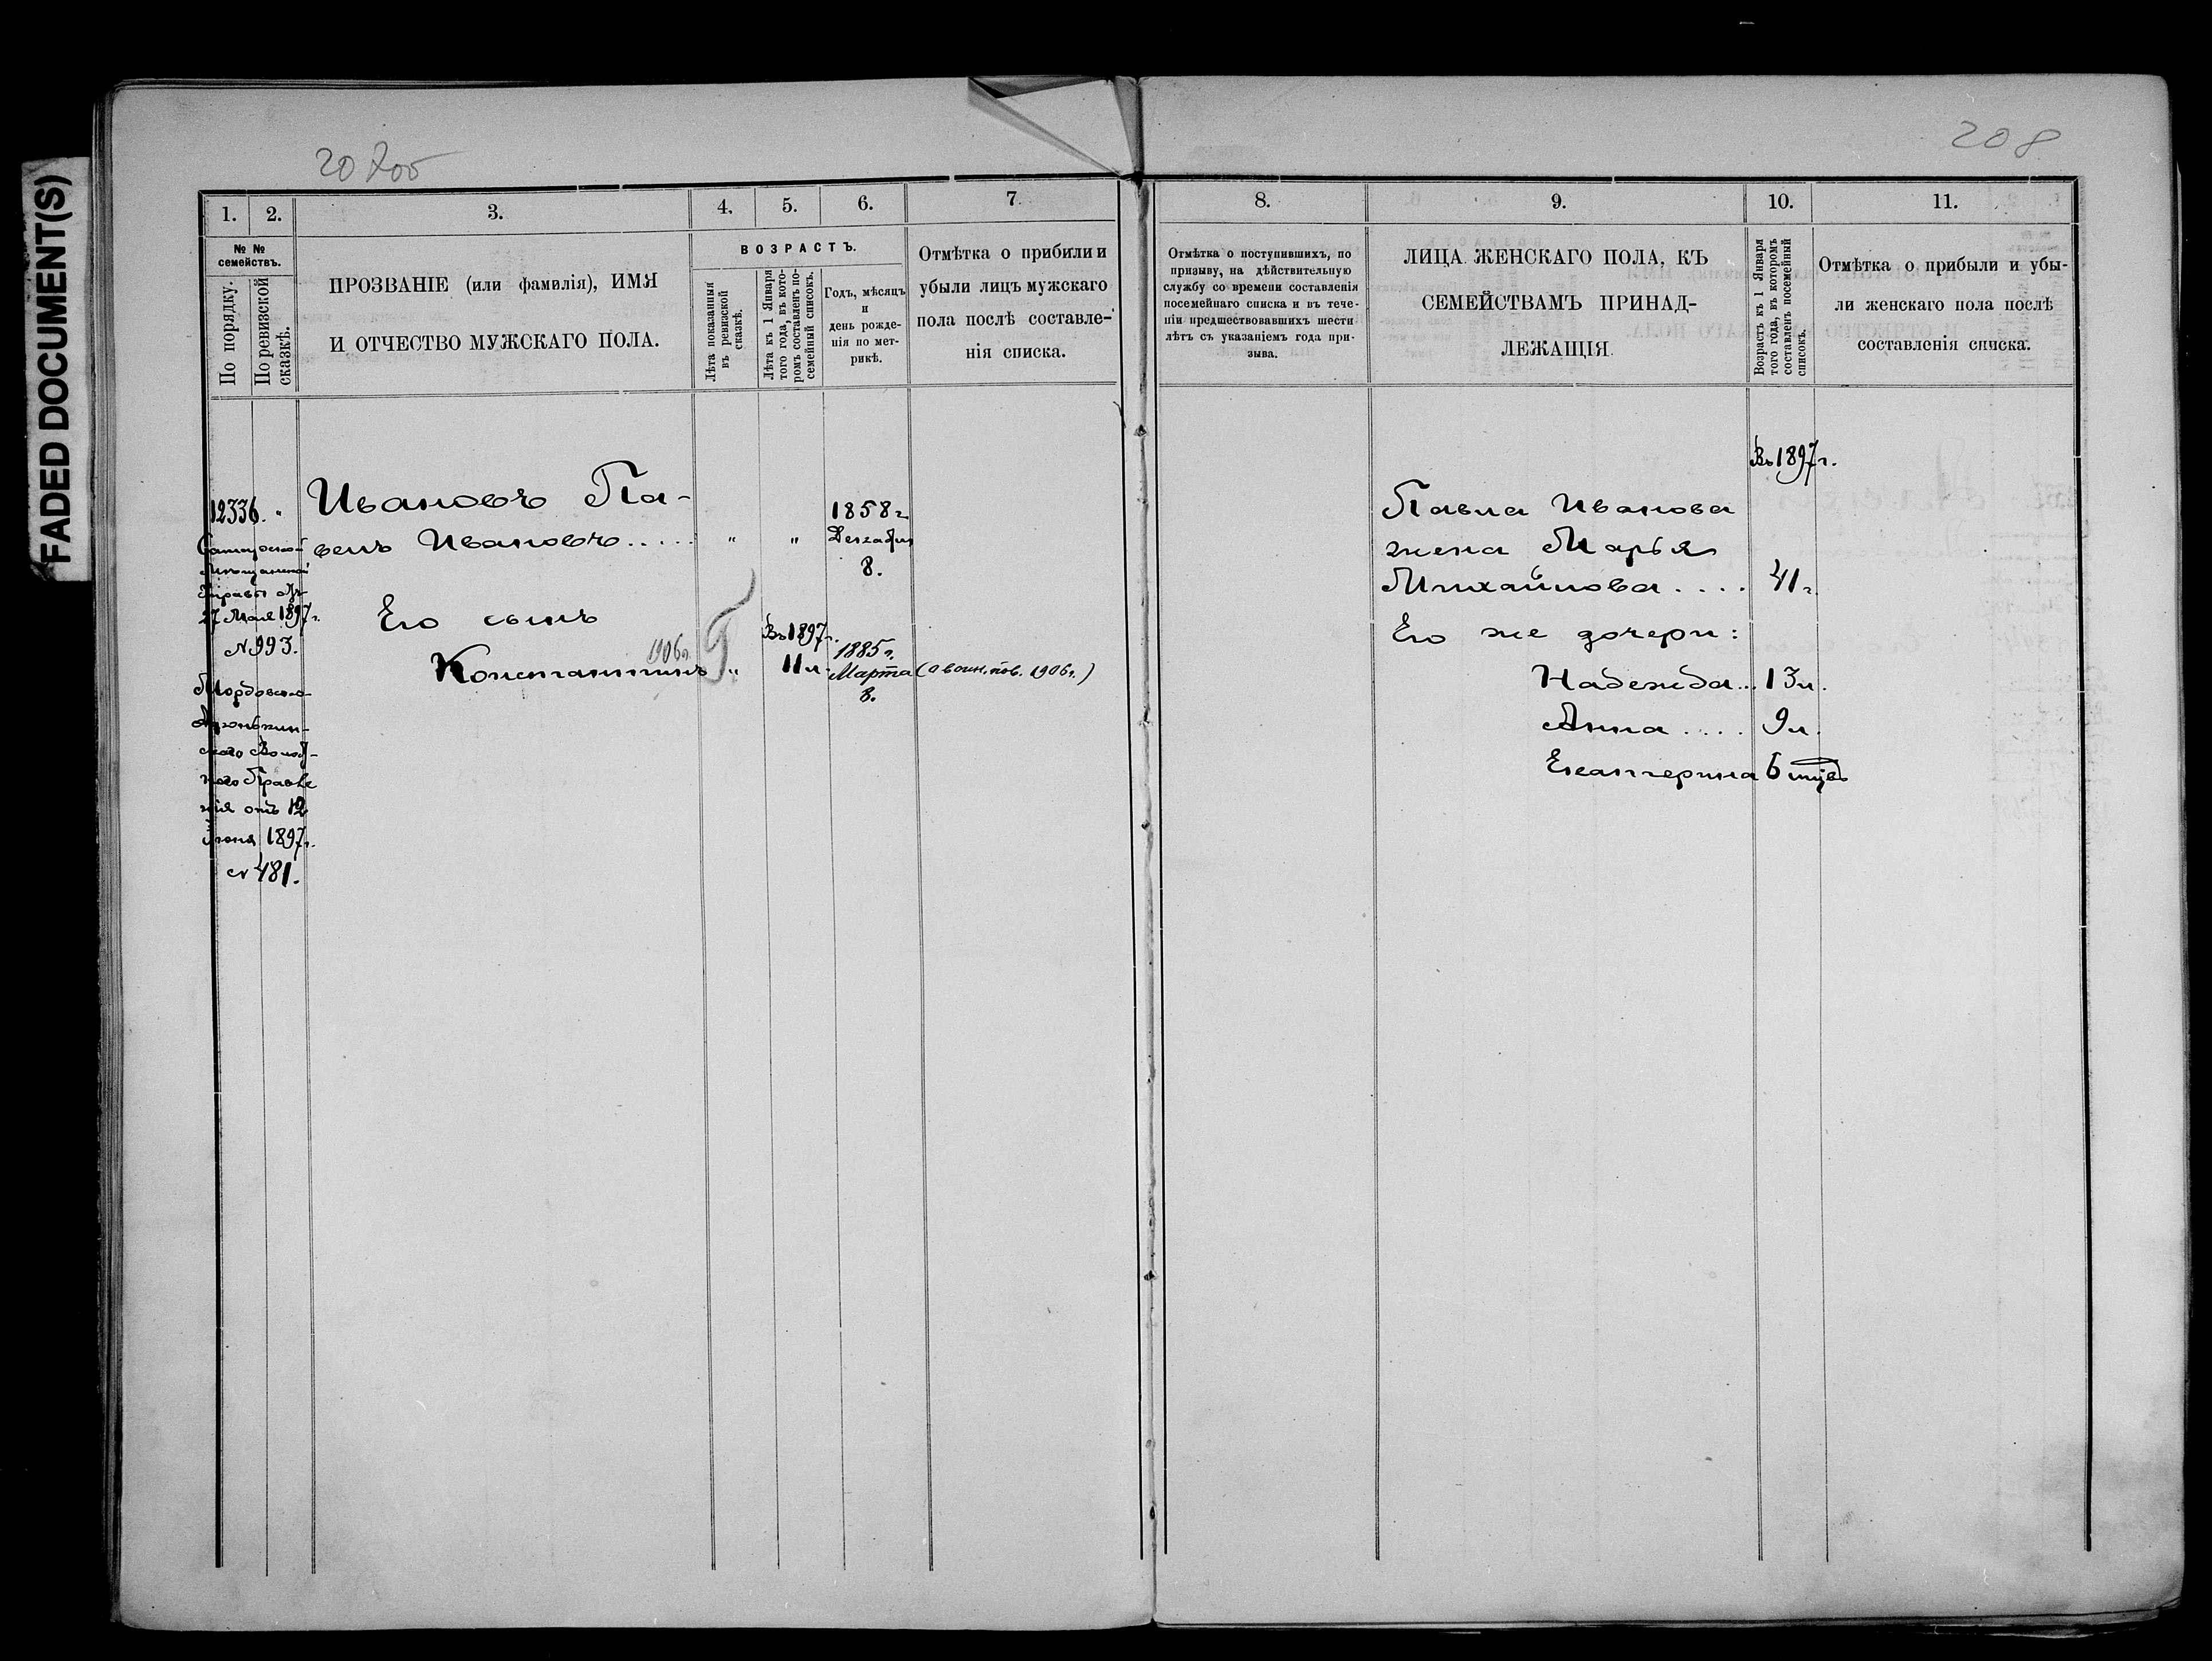 FADED DOCUMENT(S)
208
1.
2.
3.
4.
5.
6.
7.
№ №
семействъ.
По порядку.
По ревизской
сказкѣ.
ПРОЗВАНІЕ (или фамилія), ИМЯ
И ОТЧЕСТВО МУЖСКАГО ПОЛА.
ВОЗРАСТЪ.
Лѣта показанныя
въ ревизской
сказкѣ.
Лѣта къ 1 Января
того года, въ кото-
ромъ составленъ по-
семейный списокъ.
Годъ, мѣсяцъ
и
день рожде-
нія по мет-
рикѣ.
Отмѣтка о прибыли и
убыли лицъ мужскаго
пола послѣ составле-
нія списка.
12336. "
Самарской
Мѣщанской
Управы от
27 Мая 1897 г.
№ 993.
Мордовско-
скаго Волост-
ного Правле
нія отъ 12
Іюня 1897 г.
№ 481.
Ивановъ Па-
велъ Ивановъ.....
"
"
1858 г
Декабря
8.
Его сынъ
1906 г.
Константинъ
"
Въ 1897 г.
11 л.
1885 г.
Марта
8.
(о воин. пов. 1906 г.)
8.
9.
10.
11.
Отмѣтка о поступившихъ, по
призыву, на дѣйствительную
службу со времени составленія
посемейнаго списка и въ тече-
ніи предшествовавшихъ шести
лѣтъ съ указаніемъ года при-
зыва.
ЛИЦА ЖЕНСКАГО ПОЛА, КЪ
СЕМЕЙСТВАМЪ ПРИНАД-
ЛЕЖАЩІЯ.
Возрастъ къ 1 Января
того года, въ которомъ
составленъ посемейный
списокъ.
Отмѣтка о прибыли и убы-
ли женскаго пола послѣ
составленія списка.
Въ 1897 г.
Павла Иванова
жена Марья
Михайлова.... 41 г.
Его же дочери:
Надежда... 13 л.
Анна.... 9 л.
Екатерина 6 мцвъ